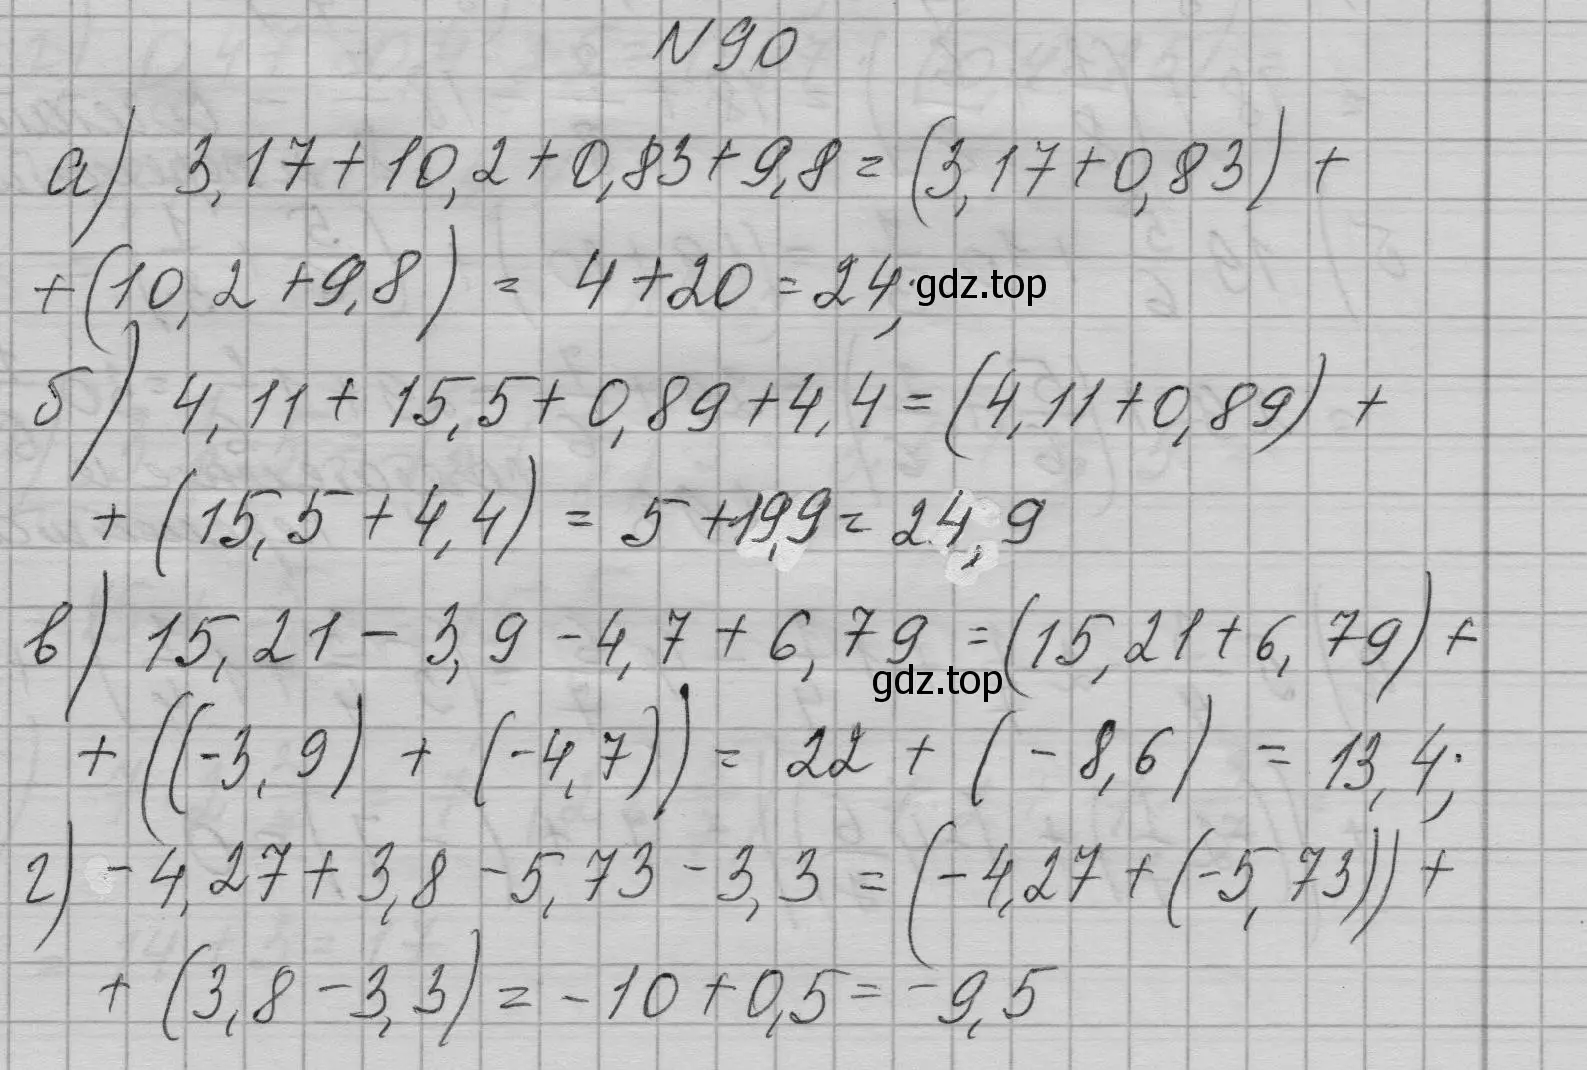 N 90
а) 3,17 + 10,2 + 0,83 + 9,8 = (3,17 + 0,83) +
+ (10,2 + 9,8) = 4 + 20 = 24;
gdz.top
б) 4,11 + 15,5 + 0,89 + 4,4 = (4,11 + 0,89) +
+ (15,5 + 4,4) = 5 + 19,9 = 24,9
в) 15,21 - 3,9 - 4,7 + 6,79 = (15,21 + 6,79) +
gdz.top
+ ((-3,9) + (-4,7)) = 22 + (-8,6) = 13,4;
г) -4,27 + 3,8 - 5,73 - 3,3 = (-4,27 + (-5,73)) +
+ (3,8 - 3,3) = -10 + 0,5 = -9,5